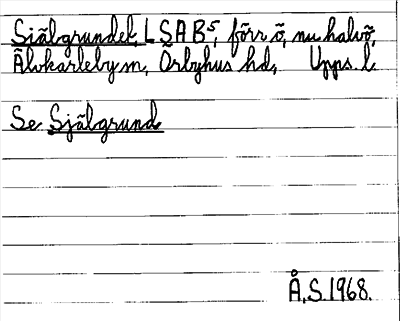 Själgrundet, L SAB5, förr ö, nu halvö,
Älvkarleby sn, Örbyhus hd, Upps. l
Se Själgrund
Å.S. 1968.